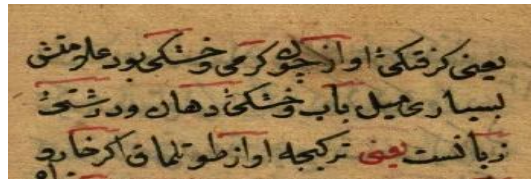 یعنی کرفتکیٔ اواز چون کرمی و خشکی بود علامتش
بسیاری میل بآب و خشکیٔ دهان و درشتیٔ
زبانست یعنی ترکیجه اواز طو تلماق اکر خارو